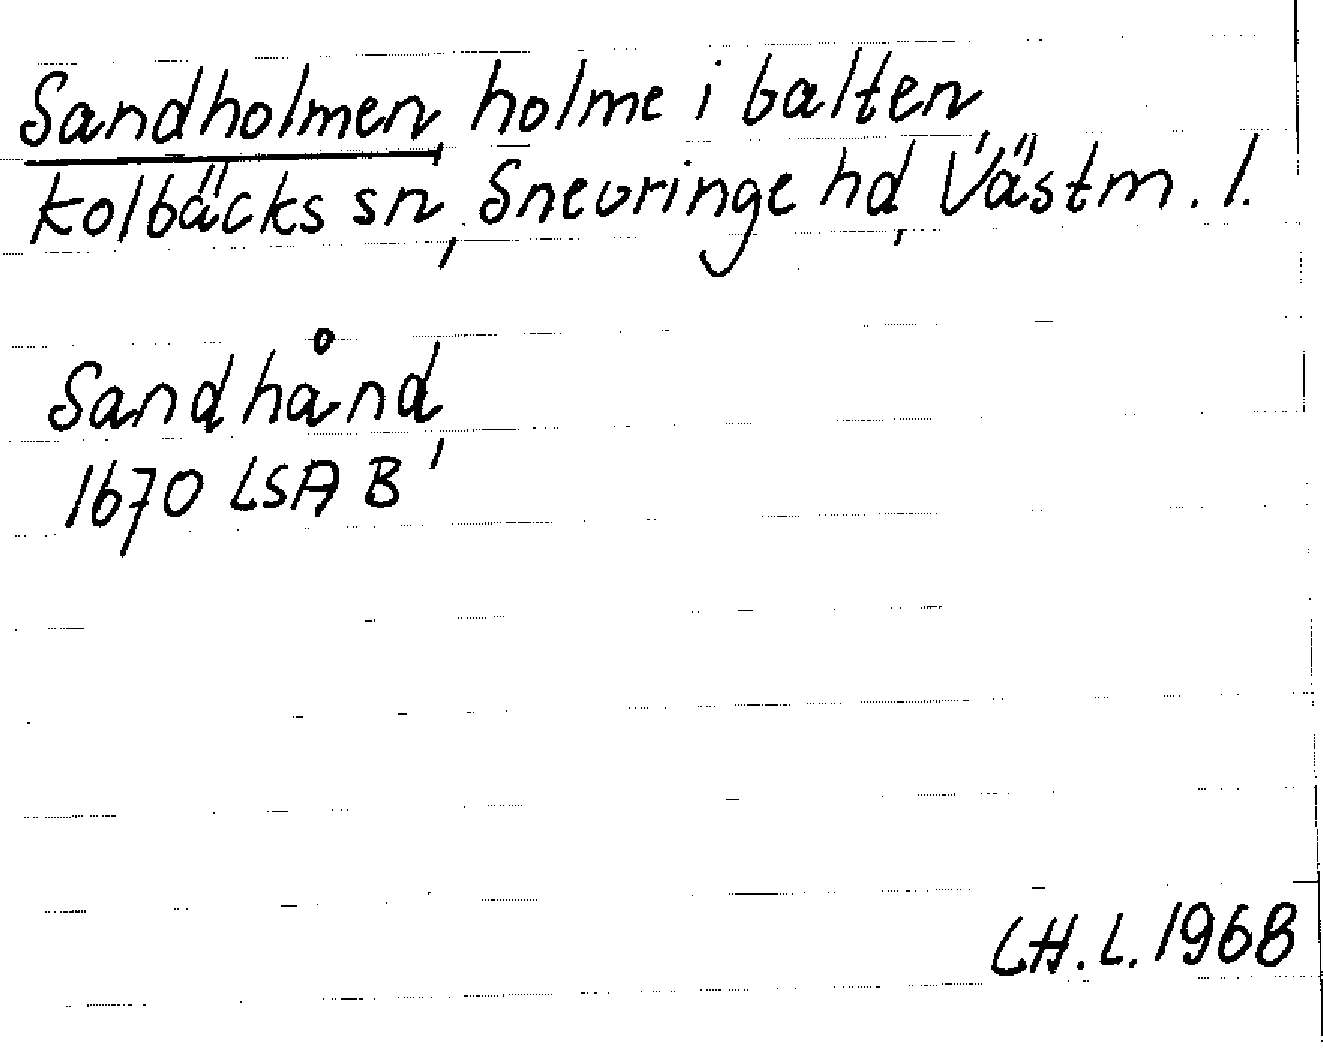 Sandholmen, holme i Galten
Kolbäcks sn, Snevringe hd, Västm. l.
Sandhånd,
1670 LSA B 1
C.H.L. 1968